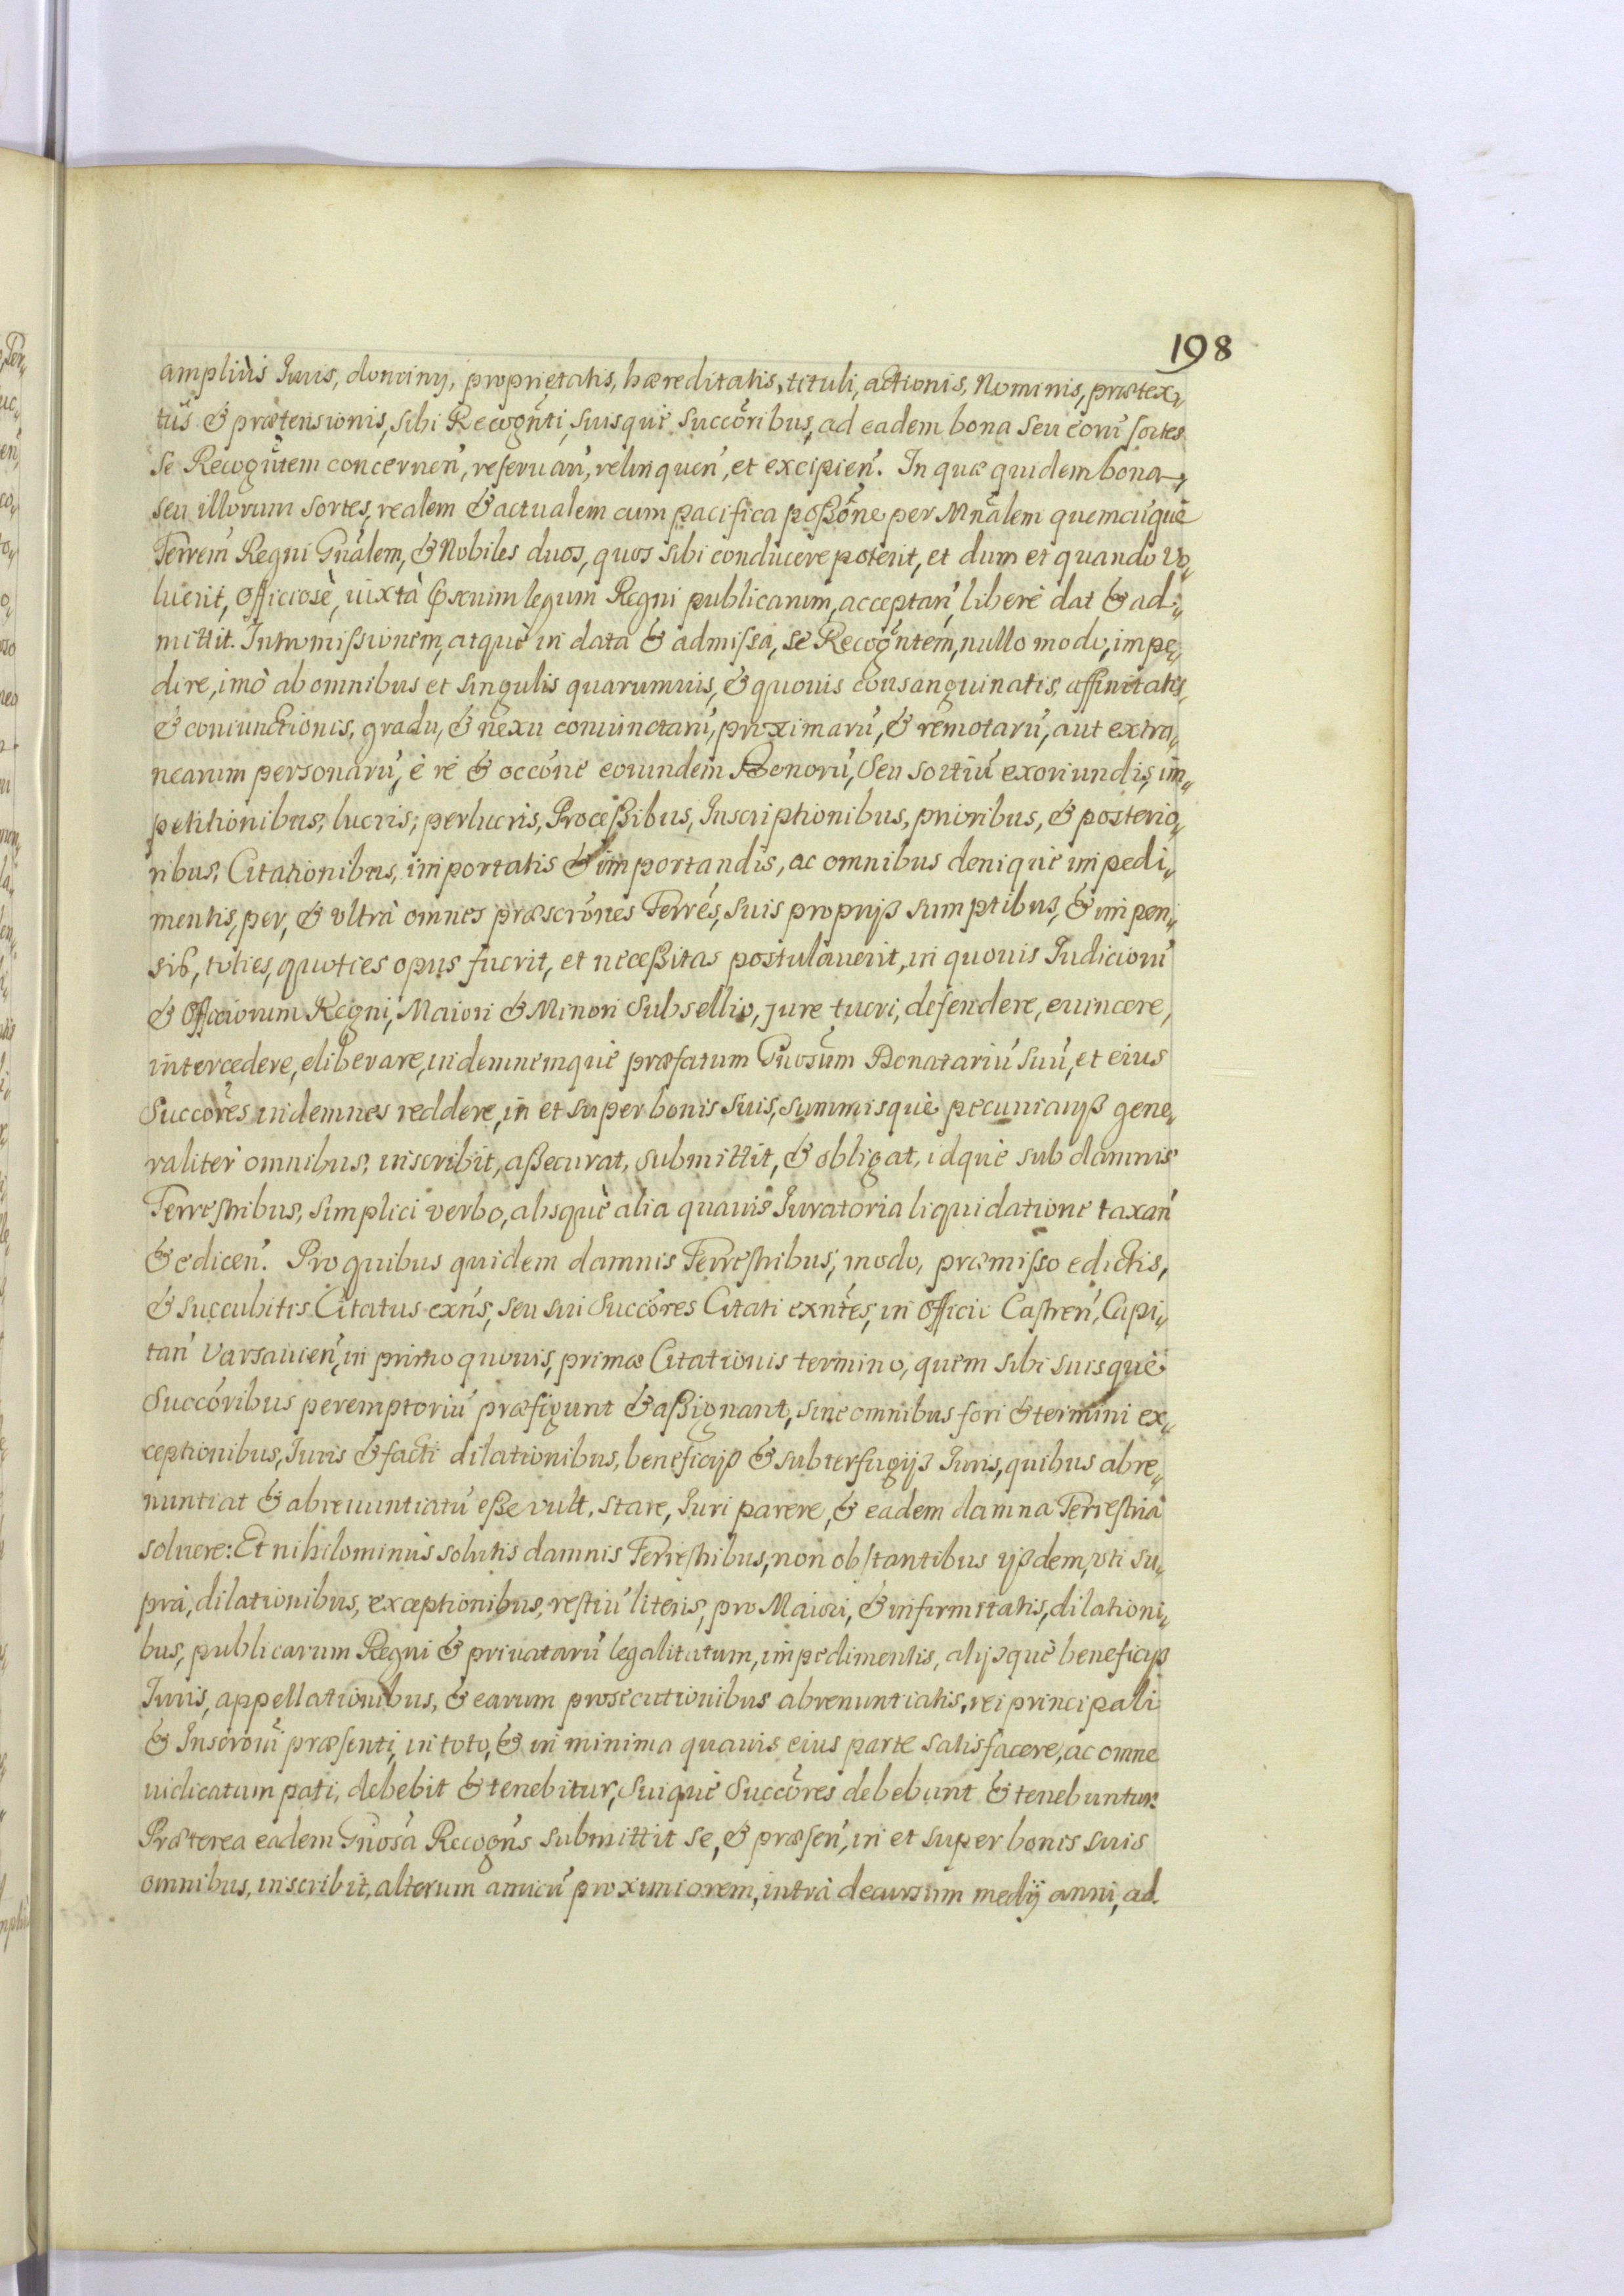 198
ampliùs Juris, dominij, proprietatis, hæreditatis, tituli, actionis, Nominis, prætex„
tus & prætensionis, sibi Recogn̄ti, suisquè succōribus, ad eadem bona seu eorū sortes
se Recogn̄tem concernen̄, reseruan̄, relinquen̄, et excipien̄. In quæ quidem bona,
seu illorum sortes, realem & actualem cum pacifica poßōne per Mn̄alem quemcūquè
Terrem̄ Regni Gn̄alem, & Nobiles duos, quos sibi conducere poterit, et dum et quando vo„
luerit, officiosè, iuxtà legum Regni publicarum, acceptan̄ liberè dat & ad„
mittit. Intromissionem, atquè in data & admissa, se Recogn̄tem, nullo modo, impe„
dire, imò ab omnibus et singulis quarumuis, & quouis consanguinatis, affinitatis,
& coniunctionis, gradu, & nexu coniunctarū, proximarū, & remotarū, aut extra„
nearum personarū, è re & occōne eorundem Bonorū, seu sortiū exoriundis, im„
petitionibus, lucris, perlucris, Proceßibus, Inscriptionibus, prioribus, & posterio„
ribus, Citationibus, importatis & importandis, ac omnibus deniquè impedi„
mentis, per, & vltrà omnes præscrōnes Terrēs, suis proprijs sumptibus, & impen„
sis, toties, quoties opus fuerit, et neceßitas postulauerit, in quouis Iudiciorū
& Officiorum Regni, Maiori & Minori Subsellio, jure tueri, defendere, euincere,
intercedere, eliberare, indemnemquè præfatum Gn̄osum Donatariū suū, et eius
Succōres indemnes reddere, in et super bonis suis, summisquè pecuniarijß gene„
raliter omnibus, inscribit, aßecurat, submittit, & obligat, idquè sub damnis
Terrestribus, simplici verbo, absquè alia quauis Iuratoria liquidatione taxan̄
& edicen̄. Pro quibus quidem damnis Terrestribus, modo, præmisso edictis,
& succubitis Citatus exn̄s, seu sui Succōres Citati exn̄tes, in officio Castren̄, Capi„
tan̄ Varsauien̄, in primo quouis, primæ Citationis termino, quem sibi suisquè
Succōribus peremptoriū præfigunt & aßignant, sine omnibus fori & termini ex„
ceptionibus, Iuris & facti dilationibus, beneficijß & subterfugijß Iuris, quibus abre„
nuntiat & abrenuntiatū eße vult, stare, Iuri parere, & eadem damna Terrestria
soluere: Et nihilominùs solutis damnis Terrestribus, non obstantibus ijßdem, vti su„
prà, dilationibus, exceptionibus, restiū literis, pro Maiori, & infirmitatis, dilationi„
bus, publicarum Regni & priuatarū legalitatum, impedimentis, alijsquè beneficijß
Iuris, appellationibus, & earum prosecutionibus abrenuntiatis, rei principali
& Inscrōni præsenti, in toto, & in minima quauis eius parte satisfacere, ac omne
iudicatum pati, debebit & tenebitur, suiquè Succōres debebunt & tenebuntur.
Præterea eadem Gn̄osa Recogn̄s submittit se, & præsen̄, in et super bonis suis
omnibus, inscribit, alterum amicū proximiorem, intrà decursum medij anni, ad